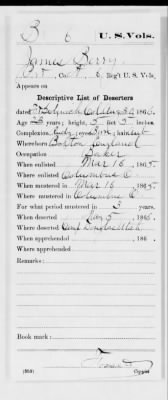 B 6 U.S. Vols.
James Berry
Pvt., Co. F, 6 Reg't U.S. Vols.
Appears on
Descriptive List of Deserters
dated 186
Age 25 years; height 5 feet 5 inches.
Complexion ; eyes ; hair
Where born Bolton England
Occupation Baker
When enlisted Mar 16, 1865.
Where enlisted Columbus O
When mustered in Mar 16, 1865.
Where mustered in Columbus O
For what period mustered in 3 years.
When deserted 5, 1865.
Where deserted Camp Douglas Utah
When apprehended , 186 .
Where apprehended
Remarks:
Book mark:
Copyist.